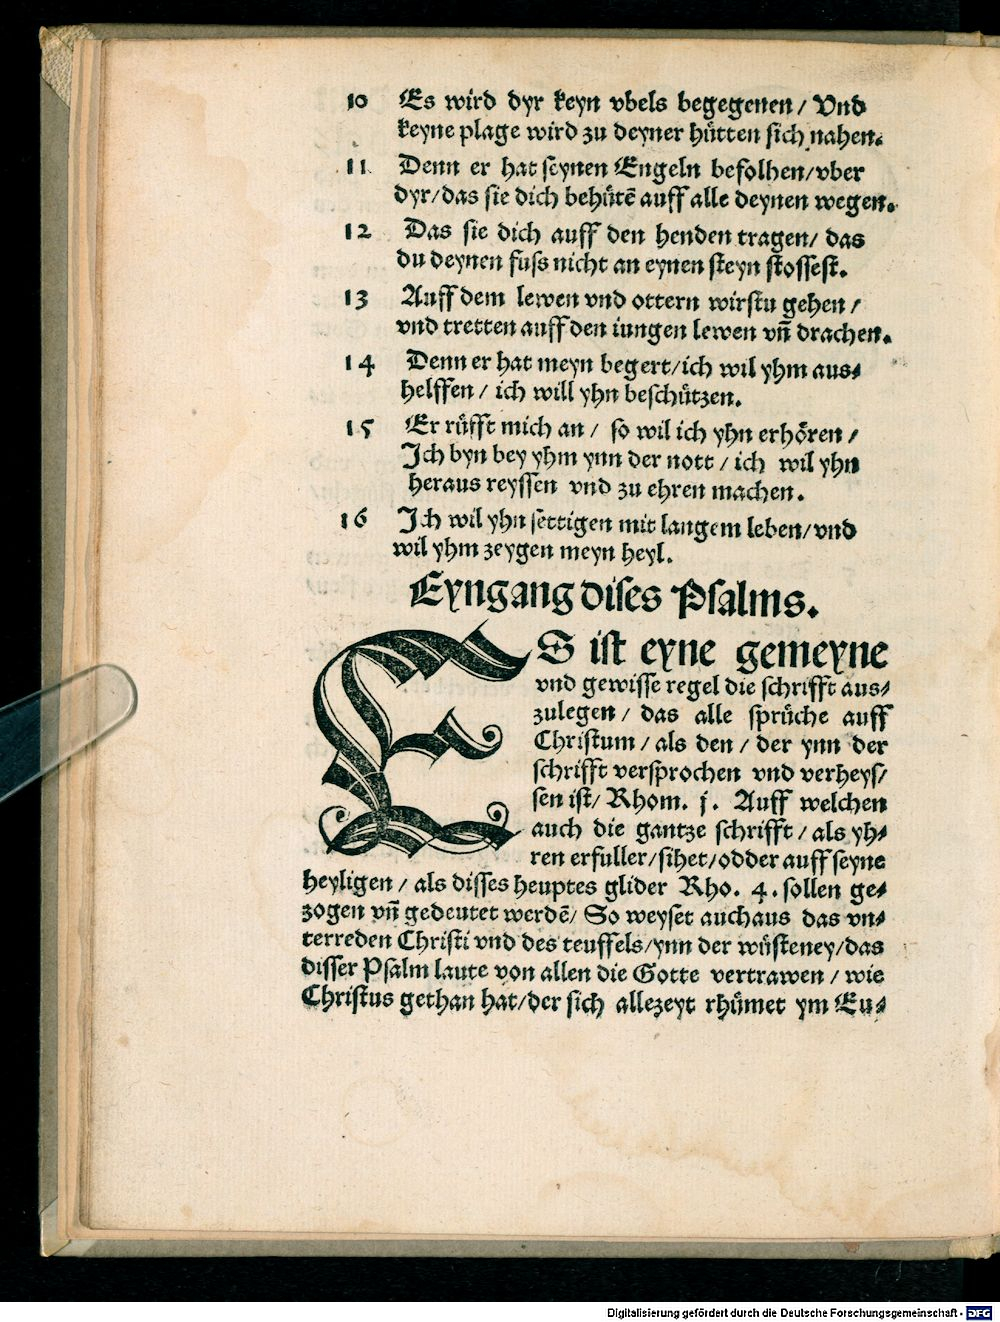 10 Es wird dyr keyn vbels begegenen / Vnd
keyne plage wird zu deyner hütten sich nahen.
11 Denn er hat seynen Engeln befolhen/vber
dyr/das sie dich behütē auff alle deynen wegen.
12 Das sie dich auff den henden tragen/ das
du deynen fuss nicht an eynen steyn stossest.
13 Auff dem lewen vnd ottern wirstu gehen /
vnd tretten auff den iungen lewen vn̄ drachen.
14 Denn er hat meyn begert/ich wil yhm aus-
helffen / ich will yhn beschützen.
15 Er rüfft mich an / so wil ich yhn erhören /
Ich byn bey yhm ynn der nott / ich wil yhn
heraus reyssen vnd zu ehren machen.
16 Ich wil yhn settigen mit langem leben/vnd
wil yhm zeygen meyn heyl.
Eyngang dises Psalms.
ES ist eyne gemeyne
vnd gewisse regel die schrifft aus-
zulegen / das alle sprüche auff
Christum / als den / der ynn der
schrifft versprochen vnd verheys-
sen ist/ Rhom. j. Auff welchen
auch die gantze schrifft / als yh-
ren erfuller/sihet/odder auff seyne
heyligen / als disses heuptes glider Rho. 4. sollen ge-
zogen vn̄ gedeutet werdē/ So weyset auch aus das vn-
terreden Christi vnd des teuffels/ynn der wüsteney/das
disser Psalm laute von allen die Gotte vertrawen / wie
Christus gethan hat/der sich allezeyt rhümet ym Eu-
Digitalisierung gefördert durch die Deutsche Forschungsgemeinschaft - DFG